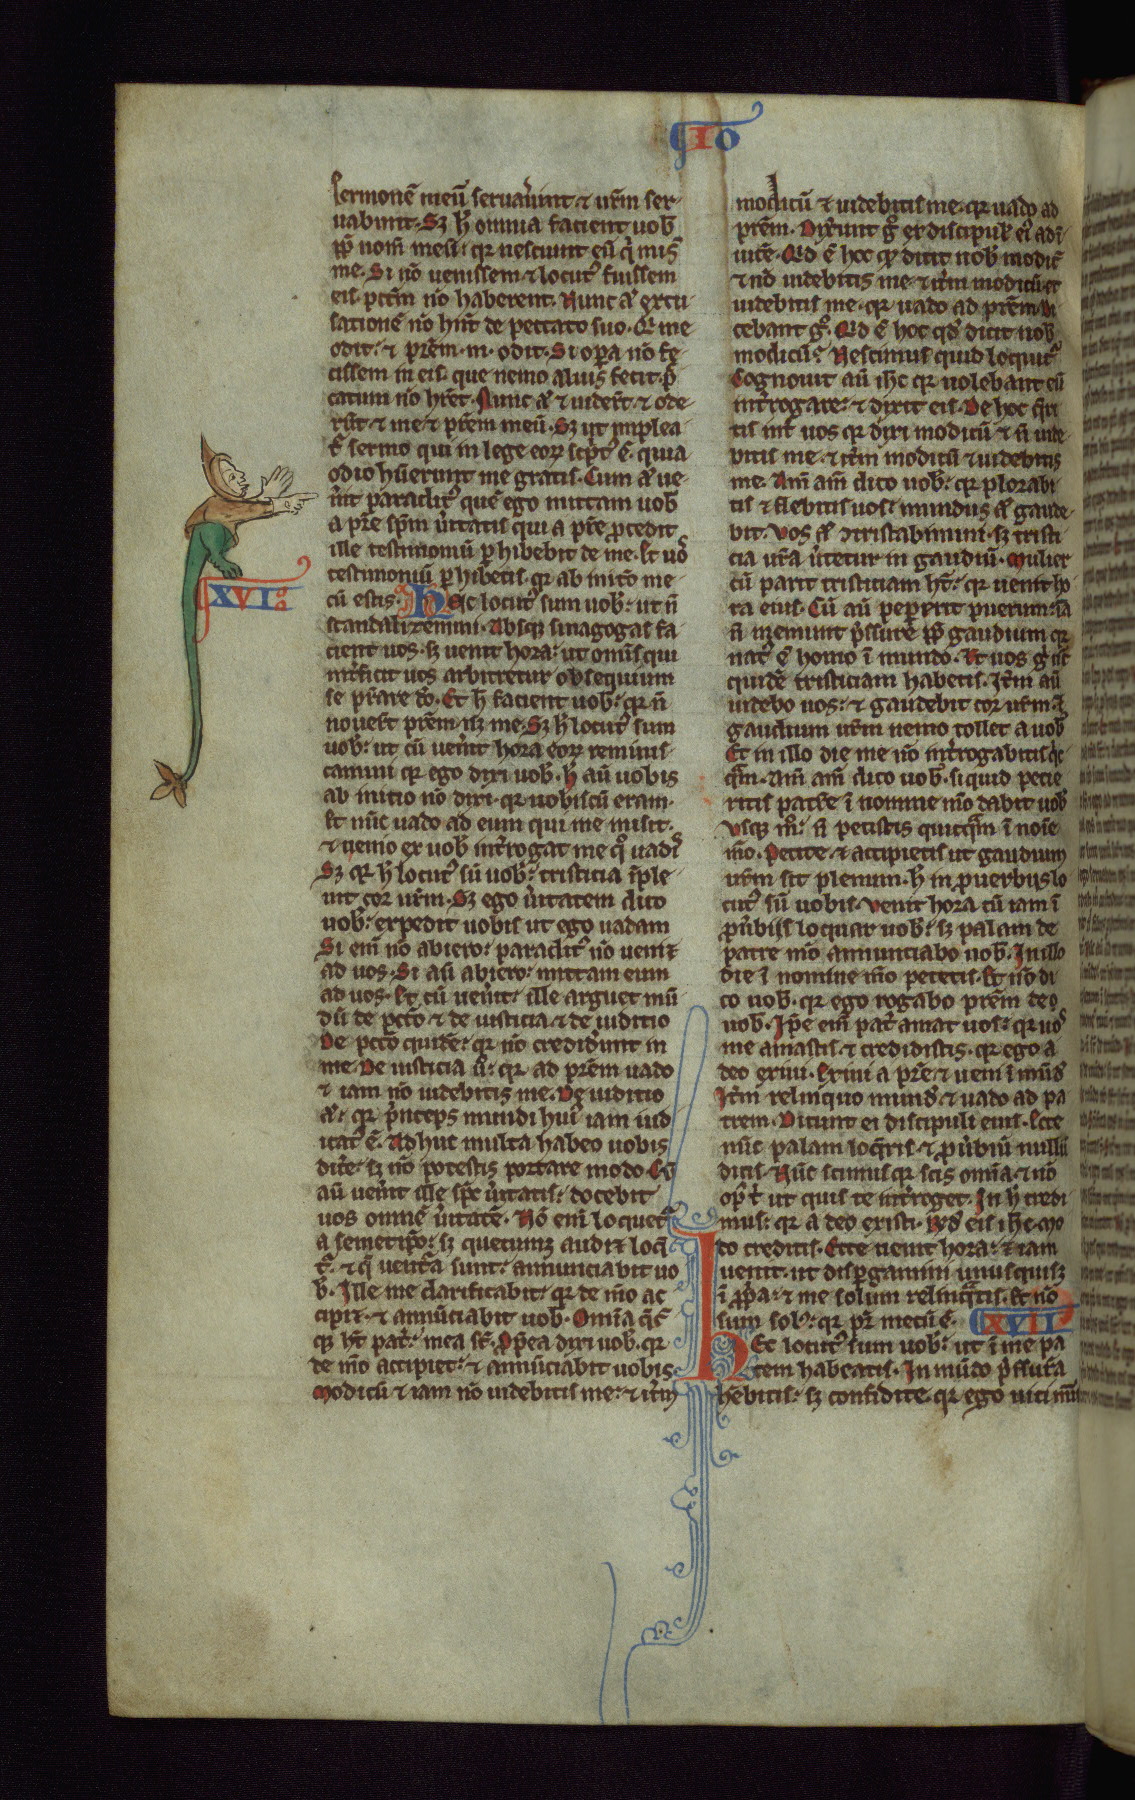 IO
sermonē meū seruaůint ⁊ ur̄m ser
uabunt. Sꝫ h̄ omnia facient uob̄
ꝓp̄ nom̄ meū: qr nesciunt eū q̇ mis̄
me. Si nō uenissem ⁊ locutꝰ fuissem
eis. pct̄m nō haberent. Nunc aͥ excu
sationē nō hn̄t de peccato suo. Qi me
odit: ⁊ pr̄em m̄. odit. Si oꝑa nō fe
cissem in eis. que nemo alius fecit. p̄
catum nō hr̄et. Nunc aͥ ⁊ uider̄t ⁊ ode
rūt ⁊ me ⁊ pr̄em meū. Sꝫ ut implea
t̄ sermo qui in lege eorꝫ sc̄ptꝰ ē. quia
odio habuerunt me gratis. Cum aͥ ue
n̄it paraclitꝰ quē ego mittam uob̄
a pr̄e sp̄m ůitatis qui a pr̄e ꝓcedit
ille testimoniū ꝑhibebit de me. Et uō
testimoniū ꝑhibetis. qr ab initō me
XVI
cū estis. Hec locutꝰ sum uob̄: ut n̄
scandalizemini. Absqꝫ sinagogas fa
cient uos. sꝫ uenit hora: ut omīs qui
int̄ficit uos arbitretur obsequium
se pr̄are dō. Et h̄ facient uob̄: qr n̄
nouer̄t pr̄em nꝫ me. Sꝫ h̄ locutꝰ sum
uob̄: ut cū ueňit hora eorꝫ reminis
camini qr ego dixi uob̄. h̄ aū uobis
ab initio nō dixi. qr uobiscū eram.
Et nūc uado ad eum qui me misit.
⁊ nemo ex uob̄ int̄rogat me qͦ uadis̄
Sꝫ qr h̄ locutꝰ sū uob̄: tristicia īple
uit cor ur̄m. Sꝫ ego ůitatem dico
uob̄: expedit uobis ut ego uadam
Si em̄ nō abiero: paraclitꝰ nō ueniet
ad uos. Si aū abiero: mittam eum
ad uos. Et cū ueňit: ille arguet mū
dū de pctō ⁊ de iusticia ⁊ de iuditio
De pctō quidē: qr nō credidunt in
me. De iusticia ů: qr ad pr̄em uado
⁊ iam nō uidebitis me. De iuditio
aͥ: qr p̄nceps mundi huiꝰ iam iud
icatꝰ ē. Adhuc multa habeo uobis
dic̄e: sꝫ nō potestis portare modo. Cū
aū ueňit ille sp̄c ůitatis: docebit
uos omnē ůitatē. Nō eni loquet̄
a semetipō: sꝫ quecumqꝫ audiet loq̄
t̄. ⁊ q̄ uent̄a sunt: annunciabit uo
b̄. Ille me clarificabit: qr de mō ac
cipiet. ⁊ annūciabit uob̄. Omīa q̄cͨ
qꝫ ht̄ pat̄: mea st̄. Ꝓpea dixi uob̄. qr
de mō accipiet: ⁊ annūciabit uobis
Modicū ⁊ iam nō uidebitis me: ⁊ it̄m
modicū ⁊ uidebitis me. qr uado ad
pr̄em. Dixerunt gͦ ex discipul̄ eiꝰ adī
uicē. Qd ē hoc qd̄ dicit nob̄ modic̄
⁊ nō uidebitis me ⁊ it̄m modicū. et
uidebitis me. qr uado ad pr̄em. Di
cebant gͦ. Qd ē hoc qd̄ dicit nob̄
modicū? Nescimus quid loquit̄
Cognouit aū ih̄c qr uolebant eū
int̄rogare: ⁊ dixit eis. De hoc q̄ri
tis int̄ uos qr dixi modicū ⁊ n̄ uide
bitis me. ⁊ it̄m modicū ⁊ uidebitis
me. Am̄ am̄ dico uob̄: qr plorabi
tis ⁊ flebitis uos: mundus aͥ gaude
bit. Vos aͥ ↄtristabimini. sꝫ tristi
cia ur̄a ůtetur in gaudiū. Mulier
cū parit tristiciam ht̄: qr uenit ho
ra eius. Cū aū pepererit puerum: iā
n̄ meminit p̄ssurē ꝓp̄ gaudium qr
natꝰ ē homo ī mundō. Et uos gͦ n̄c
quidē tristiciam habetis. It̄m aū
uidebo uos: ⁊ gaudebit cor ur̄m. ⁊
gaudium ur̄m nemo tollet a uob̄
Et in illo die me nō int̄rogabitis q̄c
q̄m. Am̄ am̄ dico uob̄. si quid pecie
ritis patr̄e ī nomine mō dabit uob̄
Vsqꝫ mͦ: n̄ petistis quicq̄m ī noīe
mō. Petite. ⁊ accipietis ut gaudium
ur̄m sit plenum. h̄ in ꝓuerbijs lo
cutꝰ sū uobis. Venit hora cū iam ī
ꝓůbijs loquar uob̄: sꝫ palam de
patre mō annunciabo uob̄. In illo
die ī nomine mō petetis. Et nō di
co uob̄. qr ego rogabo pr̄em de
uob̄. Ip̄e em̄ pat̄ amat uos: qr uoꝰ
me amastis. ⁊ credidistis. qr ego a
deo exiui. Exiui a pr̄e ⁊ ueni ī mūd̄
It̄m relinquo mund̄. ⁊ uado ad pa
trem. Dicunt ei discipuli eius. Ecce
nūc palam loq̄ris ⁊ ꝓůbiū nullū
dicis. Nūc scimus qr scis omīa. ⁊ nō
opꝰ ē ut quis te int̄roget. In h̄ credi
mus: qr a deo existi. Rn̄d̄ eis ih̄c. Mo
do creditis. Ecce uenit hora: ⁊ iam
uenit. ut dispergamini unusquisqꝫ
ī ꝓpa: ⁊ me solum relinq̄tis. Et nō
sum solꝰ: qr pr̄ mecū ē. XVII
Hec locutꝰ sum uob̄: ut ī me pa
cem habeatis. In mūdo p̄ssurā
hēbitis: sꝫ confidite. qr ego uici mū